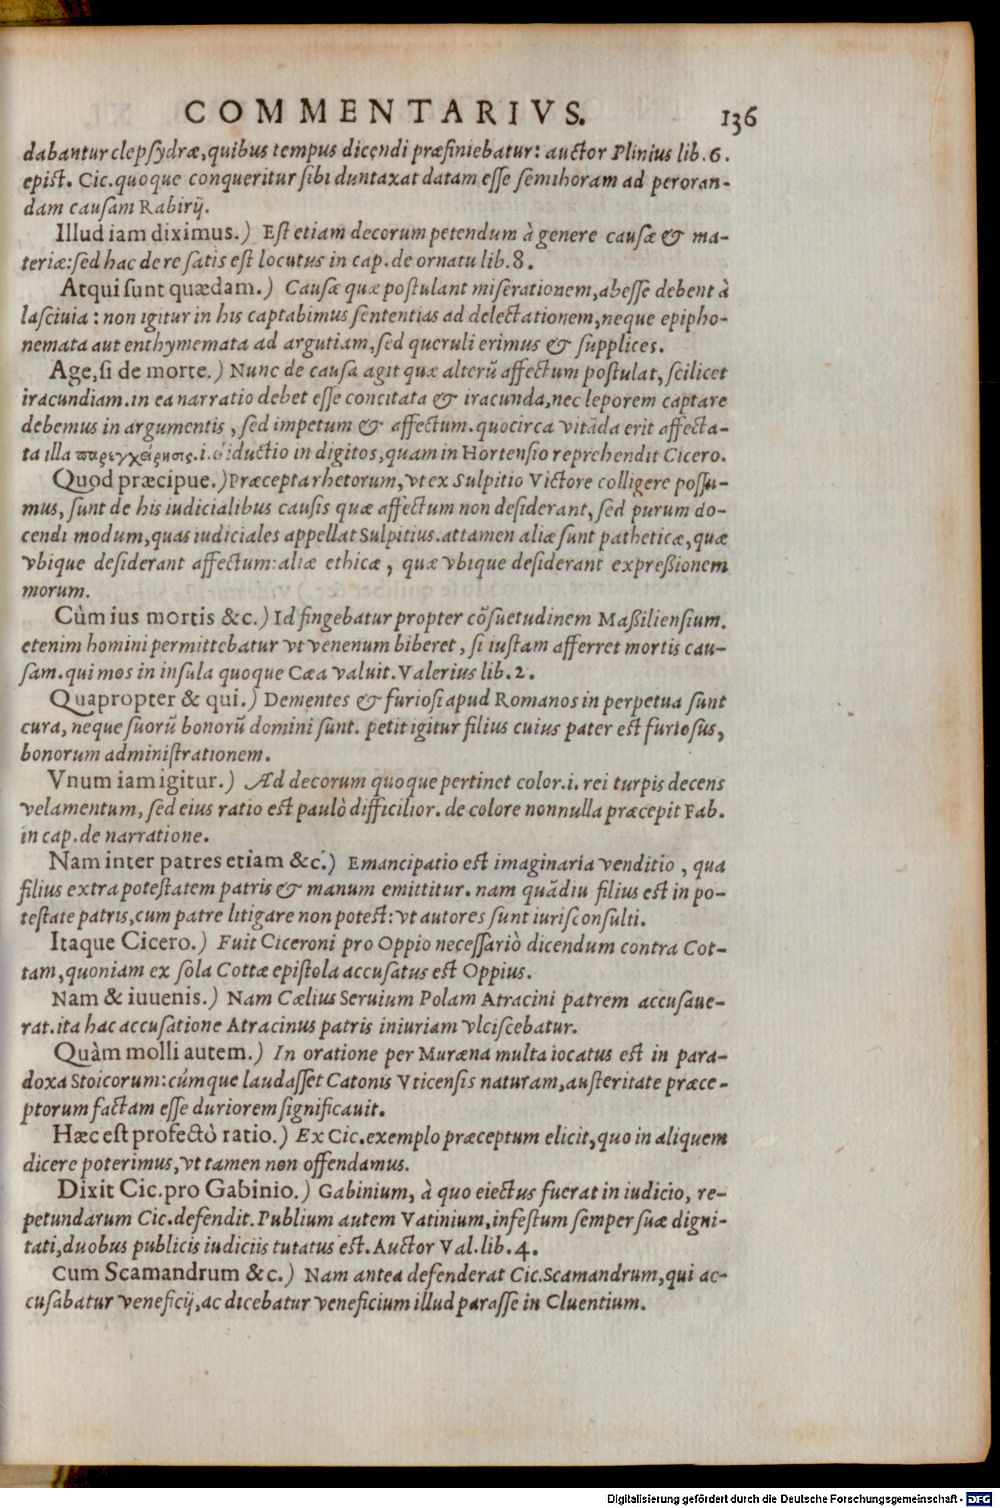 COMMENTARIVS. 136
dabantur clepsydræ, quibus tempus dicendi præfiniebatur: auctor Plinius lib. 6.
epist. Cic. quoque conqueritur sibi duntaxat datam esse semihoram ad peroran-
dam causam Rabirij.
Illud iam diximus.) Est etiam decorum petendum à genere causæ & ma-
teriæ: sed hac de re satis est locutus in cap. de ornatu lib. 8.
Atqui sunt quædam.) Causæ quæ postulant miserationem, abesse debent à
lasciuia: non igitur in his captabimus sententias ad delectationem, neque epipho-
nemata aut enthymemata ad argutiam, sed queruli erimus & supplices.
Age, si de morte.) Nunc de causa agit quæ alterũ affectum postulat, scilicet
iracundiam. in ea narratio debet esse concitata & iracunda, nec leporem captare
debemus in argumentis, sed impetum & affectum. quocirca vitãda erit affecta-
ta illa παρεγχείρησις .i. diductio in digitos, quam in Hortensio reprehendit Cicero.
Quod præcipue.) Præcepta rhetorum, vt ex Sulpitio Victore colligere possu-
mus, sunt de his iudicialibus causis quæ affectum non desiderant, sed purum do-
cendi modum, quas iudiciales appellat Sulpitius. attamen aliæ sunt patheticæ, quæ
vbique desiderant affectum: aliæ ethicæ, quæ vbique desiderant expreßionem
morum.
Cùm ius mortis &c.) Id fingebatur propter cõsuetudinem Maßiliensium.
etenim homini permittebatur vt venenum biberet, si iustam afferret mortis cau-
sam. qui mos in insula quoque Cæa valuit. Valerius lib. 2.
Quapropter & qui.) Dementes & furiosi apud Romanos in perpetua sunt
cura, neque suorũ bonorũ domini sunt. petit igitur filius cuius pater est furiosus,
bonorum administrationem.
Vnum iam igitur.) Ad decorum quoque pertinet color .i. rei turpis decens
velamentum, sed eius ratio est paulò difficilior. de colore nonnulla præcepit Fab.
in cap. de narratione.
Nam inter patres etiam &c.) Emancipatio est imaginaria venditio, qua
filius extra potestatem patris & manum emittitur. nam quãdiu filius est in po-
testate patris, cum patre litigare non potest: vt autores sunt iurisconsulti.
Itaque Cicero.) Fuit Ciceroni pro Oppio necessariò dicendum contra Cot-
tam, quoniam ex sola Cottæ epistola accusatus est Oppius.
Nam & iuuenis.) Nam Cælius Seruium Polam Atracini patrem accusaue-
rat. ita hac accusatione Atracinus patris iniuriam vlciscebatur.
Quàm molli autem.) In oratione per Muræna multa iocatus est in para-
doxa Stoicorum: cúmque laudasset Catonis Vticensis naturam, austeritate præce-
ptorum factam esse duriorem significauit.
Hæc est profectò ratio.) Ex Cic. exemplo præceptum elicit, quo in aliquem
dicere poterimus, vt tamen non offendamus.
Dixit Cic. pro Gabinio.) Gabinium, à quo eiectus fuerat in iudicio, re-
petundarum Cic. defendit. Publium autem Vatinium, infestum semper suæ digni-
tati, duobus publicis iudiciis tutatus est. Auctor Val. lib. 4.
Cum Scamandrum &c.) Nam antea defenderat Cic. Scamandrum, qui ac-
cusabatur veneficij, ac dicebatur veneficium illud parasse in Cluentium.
Digitalisierung gefördert durch die Deutsche Forschungsgemeinschaft - DFG